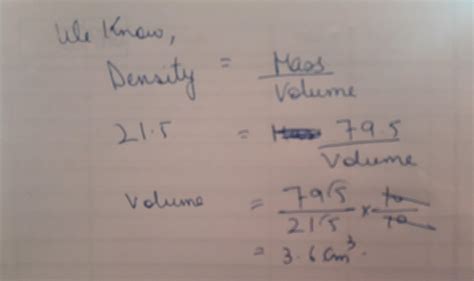 We Know,
Density = Mass
Volume
21.5 = 79.5
Volume
Volume = 795 × 10
215 10
= 3.6 cm³.